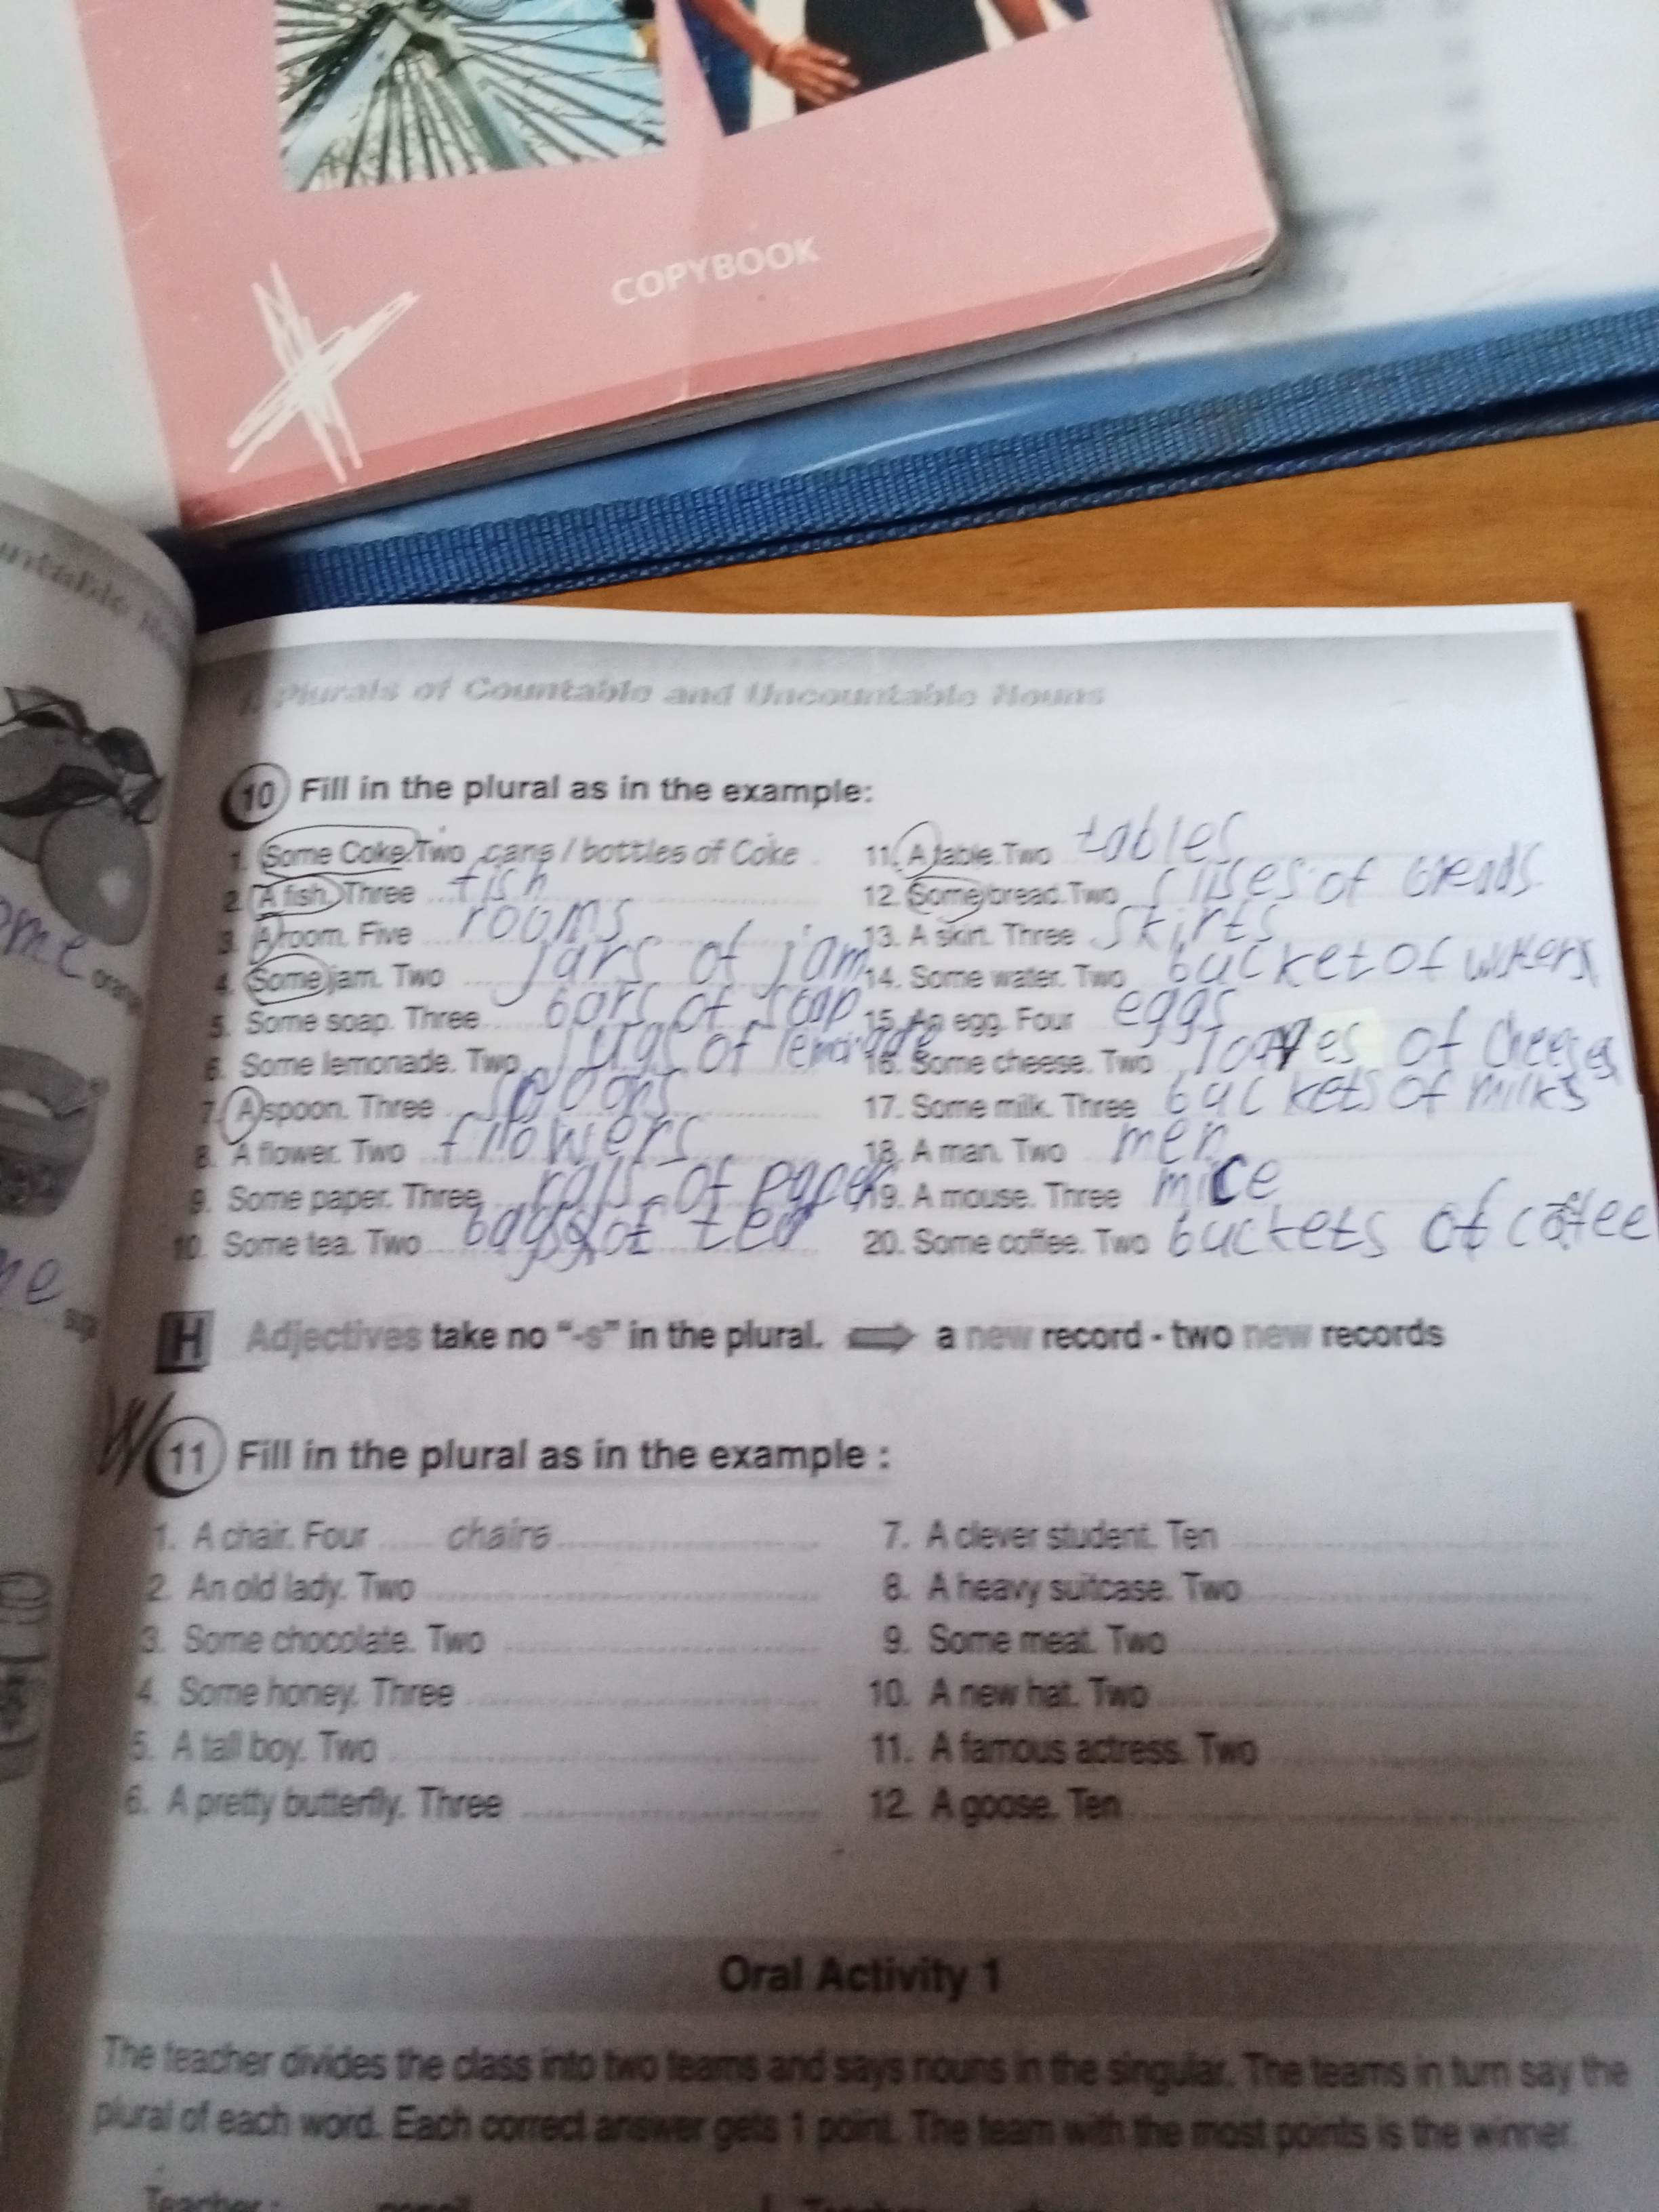 COPYBOOK
Plurals of Countable and Uncountable Nouns
10 Fill in the plural as in the example:
1. Some Coke. Two cans / bottles of Coke
2. A fish. Three fish
3. A room. Five rooms
4. Some jam. Two jars of jam
5. Some soap. Three bars of soap
6. Some lemonade. Two jugs of lemonade
7. A spoon. Three spoons
8. A flower. Two flowers
9. Some paper. Three of paper
10. Some tea. Two bags of tea
11. A table. Two tables
12. Some bread. Two of breads
13. A skirt. Three skirts
14. Some water. Two bucket of waters
15. An egg. Four eggs
16. Some cheese. Two of cheeses
17. Some milk. Three buckets of milks
18. A man. Two men
19. A mouse. Three mice
20. Some coffee. Two buckets of coffee
H Adjectives take no "-s" in the plural. ⇒ a new record - two new records
11 Fill in the plural as in the example :
1. A chair. Four chairs
2. An old lady. Two
3. Some chocolate. Two
4. Some honey. Three
5. A tall boy. Two
6. A pretty butterfly. Three
7. A clever student. Ten
8. A heavy suitcase. Two
9. Some meat. Two
10. A new hat. Two
11. A famous actress. Two
12. A goose. Ten
Oral Activity 1
The teacher divides the class into two teams and says nouns in the singular. The teams in turn say the
plural of each word. Each correct answer gets 1 point. The team with the most points is the winner.
Teacher : pencil